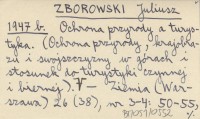 ZBOROWSKI Juliusz
1947 b.
Ochrona przyrody a turys-
tyka. (Ochrona przyrody, krajobra-
zu i swojszczyzny w górach i
stosunek do turystyki czynnej
i biernej). V — Ziemia (War-
szawa) 26 (38), nr 3-4: 50-55,